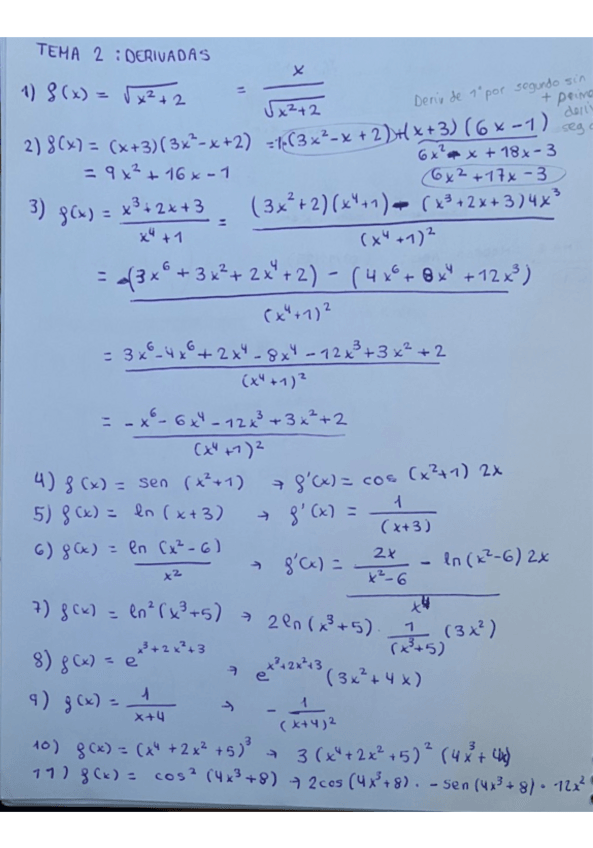 TEMA 2 : DERIVADAS
1) f(x) = √(x²+2) = x / √(x²+2)
Deriv de 1º por segundo sin
+ prime
2) f(x) = (x+3)(3x²-x+2) = 1·(3x²-x+2)+(x+3)(6x-1)
6x²-x+18x-3
= 9x²+16x-1
6x²+17x-3
3) f(x) = (x³+2x+3) / (x⁴+1) = ((3x²+2)(x⁴+1) - (x³+2x+3)4x³) / (x⁴+1)²
= ((3x⁶+3x²+2x⁴+2) - (4x⁶+8x⁴+12x³)) / (x⁴+1)²
= (3x⁶-4x⁶+2x⁴-8x⁴-12x³+3x²+2) / (x⁴+1)²
= (-x⁶-6x⁴-12x³+3x²+2) / (x⁴+1)²
4) f(x) = sen (x²+1) → f'(x) = cos (x²+1) 2x
5) f(x) = ln (x+3) → f'(x) = 1 / (x+3)
6) f(x) = ln (x²-6) / x² → f'(x) = (2x / (x²-6) - ln(x²-6) 2x) / x⁴
7) f(x) = ln²(x³+5) → 2ln(x³+5) · 1 / (x³+5) (3x²)
8) f(x) = e^(x³+2x²+3) → e^(x³+2x²+3) (3x²+4x)
9) f(x) = 1 / (x+4) → - 1 / (x+4)²
10) f(x) = (x⁴+2x²+5)³ → 3(x⁴+2x²+5)² (4x³+4x)
11) f(x) = cos² (4x³+8) → 2cos(4x³+8) · -sen(4x³+8) · 12x²